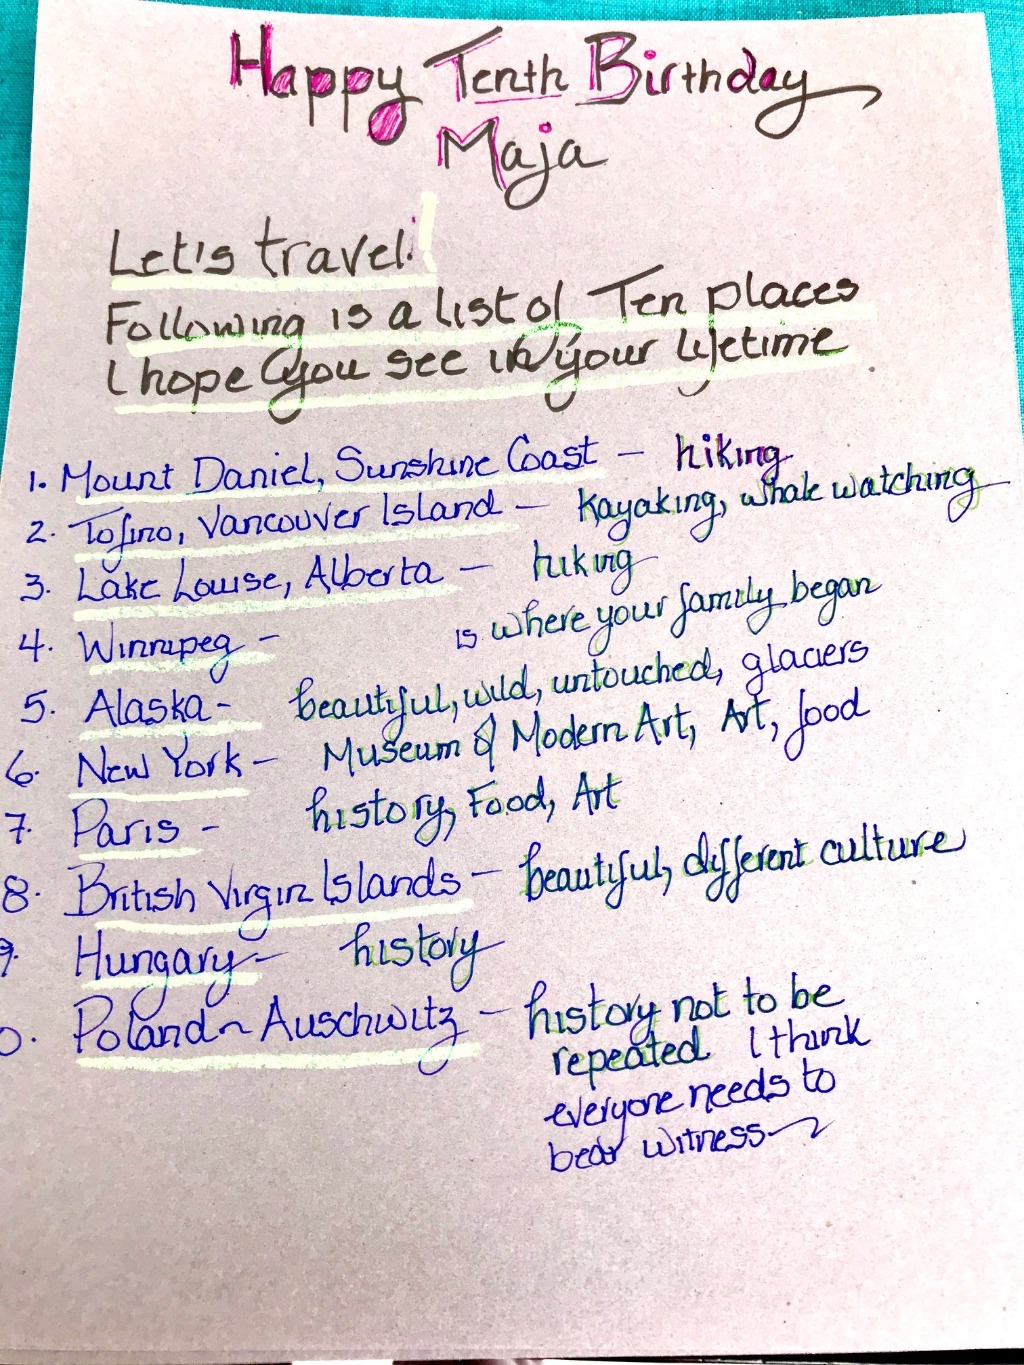 Happy Tenth Birthday
Maja
Let's travel!
Following is a list of Ten places
I hope you see in your lifetime.
1. Mount Daniel, Sunshine Coast - hiking
2. Tofino, Vancouver Island - Kayaking, whale watching
3. Lake Louise, Alberta - hiking
4. Winnipeg - is where your family began
5. Alaska - beautiful, wild, untouched, glaciers
6. New York - Museum of Modern Art, Art, food
7. Paris - history, Food, Art
8. British Virgin Islands - beautiful, different culture
9. Hungary - history
0. Poland ~ Auschwitz - history not to be
repeated. I think
everyone needs to
bear witness